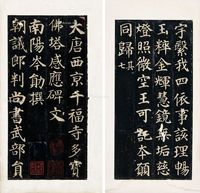 宇繫我四依事該理暢
玉粹金輝慧鏡無垢慈
燈照微空王可託本願
同歸其七
大唐西京千福寺多寶
佛塔感應碑文
南陽岑勛撰
朝議郎判尚書武部員